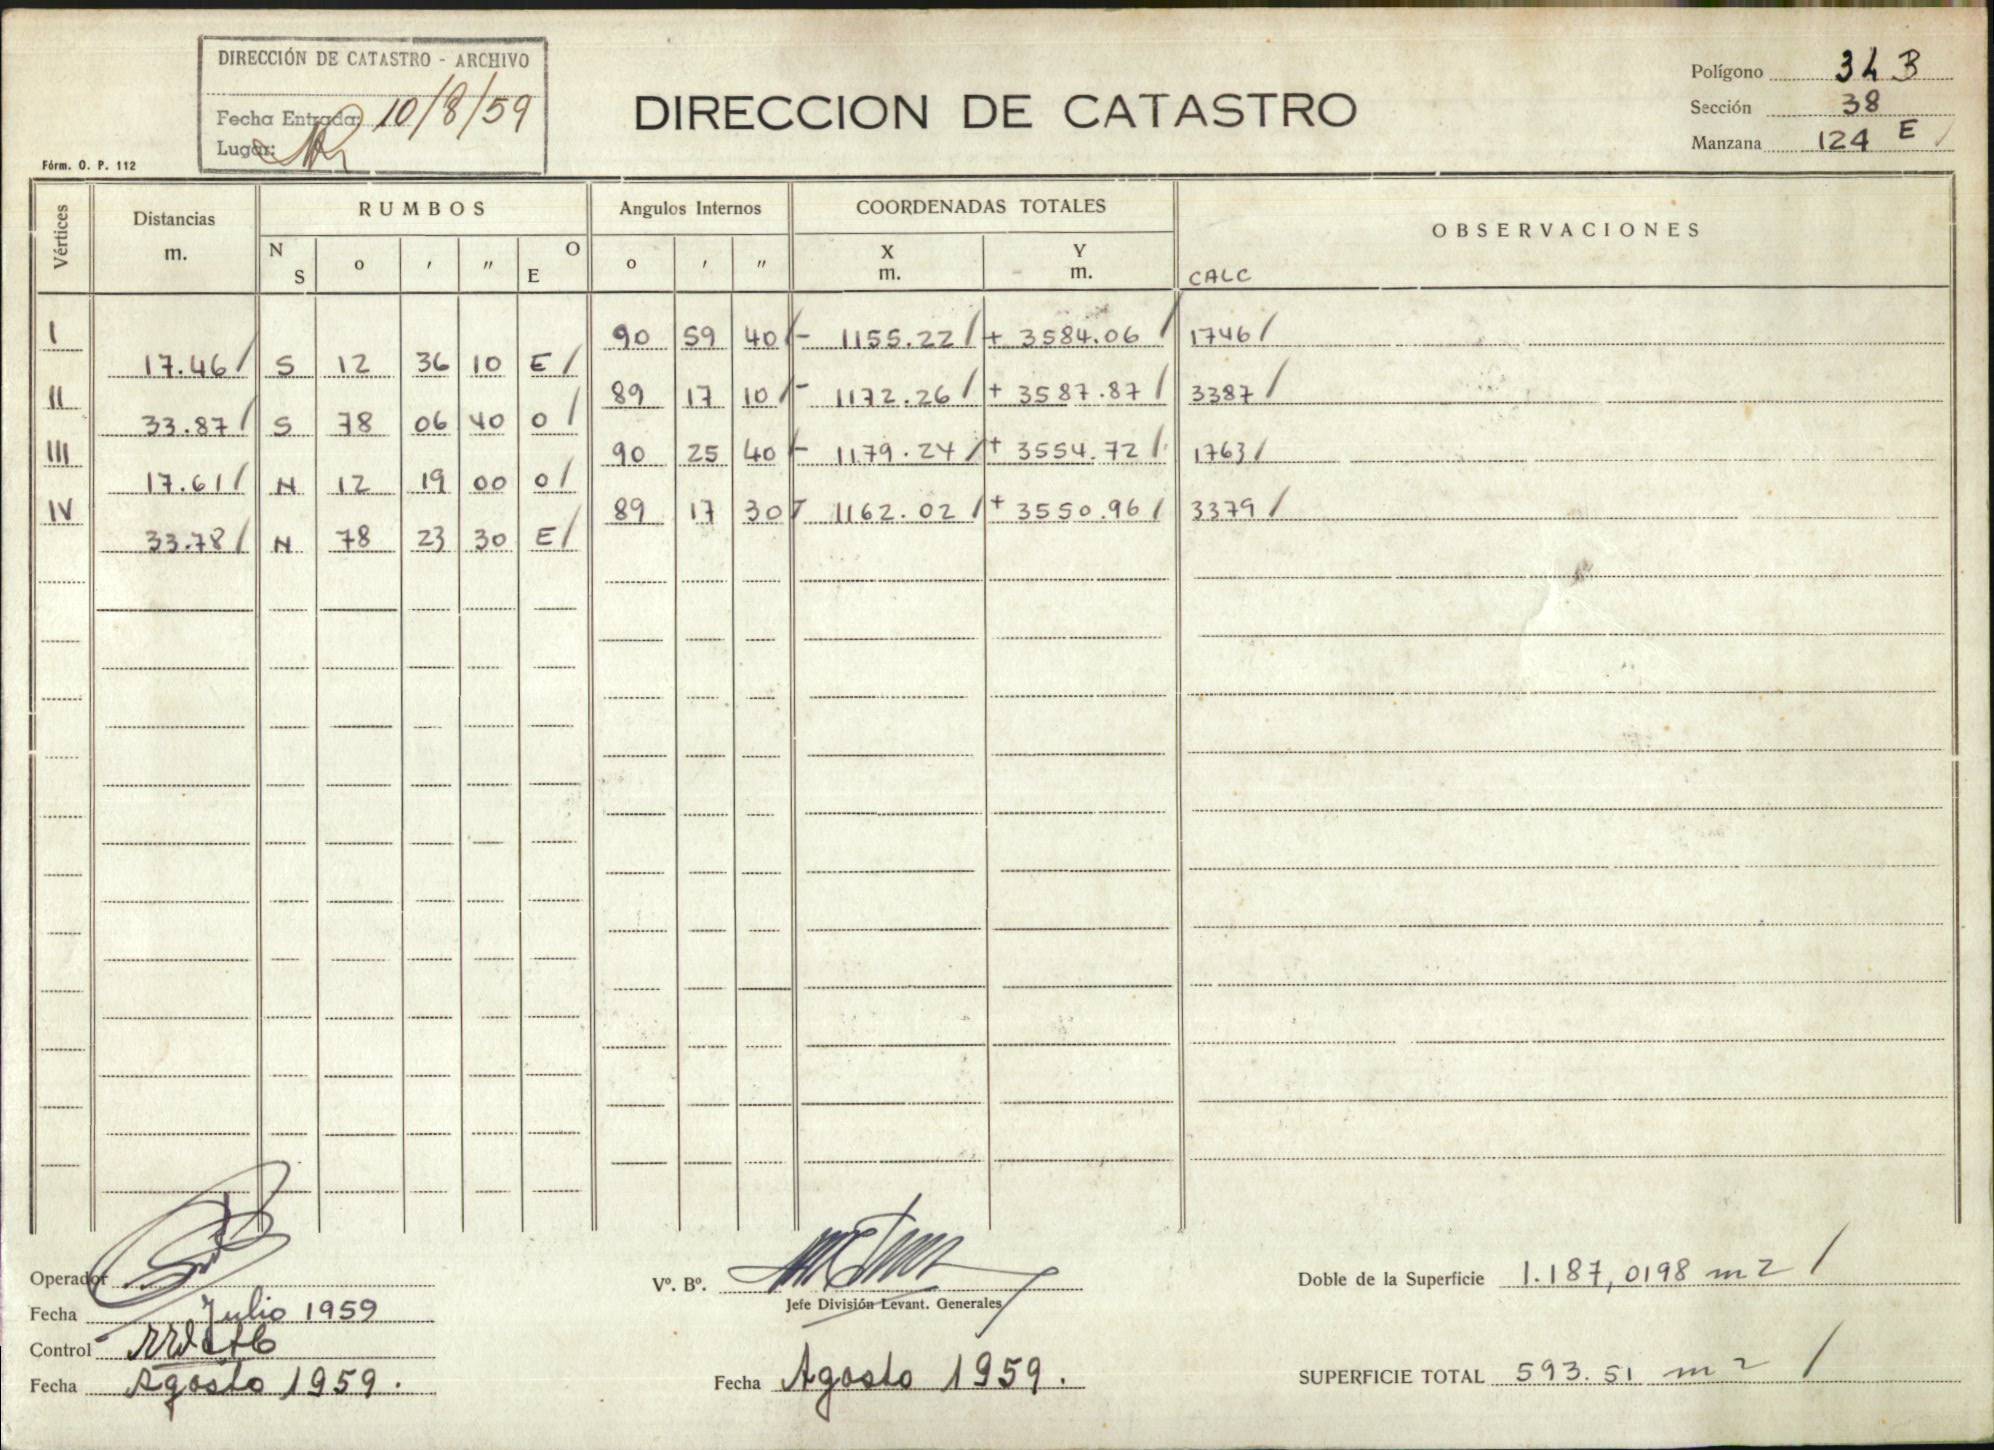 DIRECCIÓN DE CATASTRO - ARCHIVO
Fecha Entrada: 10/8/59
Lugar:
Fórm. O. P. 112
DIRECCION DE CATASTRO
Polígono 34 B
Sección 38
Manzana 124 E /
Vértices
Distancias m.
RUMBOS
N S o ' " O E
Angulos Internos
o ' "
COORDENADAS TOTALES
X m. Y m.
OBSERVACIONES
CALC
I 90 59 40 / - 1155.22 / + 3584.06 / 1746 /
17.46 / S 12 36 10 E /
II 89 17 10 / - 1172.26 / + 3587.87 / 3387 /
33.87 / S 78 06 40 O /
III 90 25 40 / - 1179.24 / + 3554.72 / 1763 /
17.61 / N 12 19 00 O /
IV 89 17 30 / - 1162.02 / + 3550.96 / 3379 /
33.78 / N 78 23 30 E /
Operador
Fecha Julio 1959
Control
Fecha Agosto 1959.
Vº. Bº.
Jefe División Levant. Generales
Fecha Agosto 1959.
Doble de la Superficie 1.187,0198 m2 /
SUPERFICIE TOTAL 593.51 m2 /